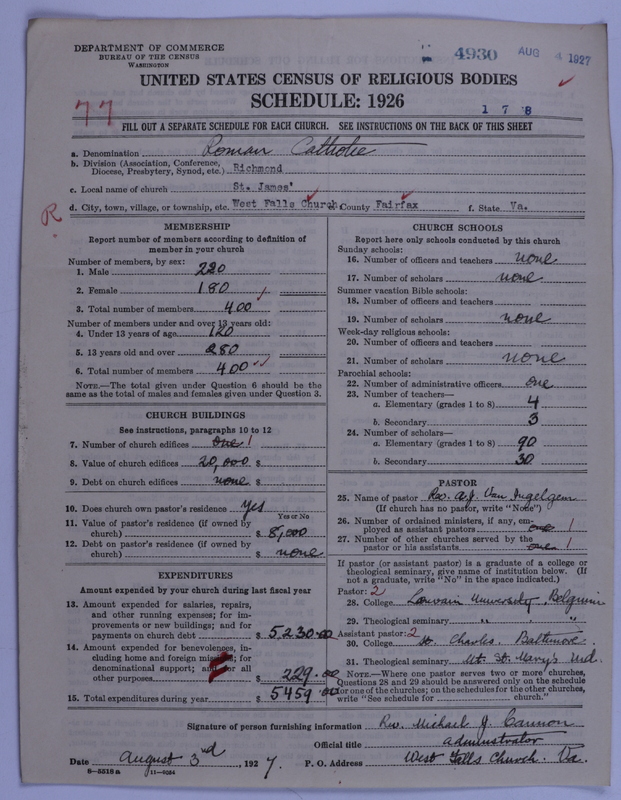 DEPARTMENT OF COMMERCE
BUREAU OF THE CENSUS
WASHINGTON
4930 AUG 4 1927
UNITED STATES CENSUS OF RELIGIOUS BODIES
SCHEDULE: 1926
77
1 7 8
FILL OUT A SEPARATE SCHEDULE FOR EACH CHURCH. SEE INSTRUCTIONS ON THE BACK OF THIS SHEET
a. Denomination Roman Catholic
b. Division (Association, Conference, Diocese, Presbytery, Synod, etc.) Richmond
c. Local name of church St. James'
R
d. City, town, village, or township, etc. West Falls Church e. County Fairfax f. State Va.
MEMBERSHIP
Report number of members according to definition of
member in your church
Number of members, by sex:
1. Male 220
2. Female 180
3. Total number of members 400
Number of members under and over 13 years old:
4. Under 13 years of age 120
5. 13 years old and over 280
6. Total number of members 400
NOTE.—The total given under Question 6 should be
same as the total of males and females given under Question 3.
CHURCH BUILDINGS
See instructions, paragraphs 10 to 12
7. Number of church edifices one 1
8. Value of church edifices 20,000 $
9. Debt on church edifices none $
10. Does church own pastor's residence yes
Yes or No
11. Value of pastor's residence (if owned by
church) $ 8,000
12. Debt on pastor's residence (if owned by
church) $ none
EXPENDITURES
Amount expended by your church during last fiscal year
13. Amount expended for salaries, repairs,
and other running expenses; for im-
provements or new buildings; and for
payments on church debt $ 5,230.00
14. Amount expended for benevolences, in-
cluding home and foreign missions; for
denominational support; and for all
other purposes $ 229.00
15. Total expenditures during year $ 5459.00
CHURCH SCHOOLS
Report here only schools conducted by this church
Sunday schools:
16. Number of officers and teachers none
17. Number of scholars none
Summer vacation Bible schools:
18. Number of officers and teachers
19. Number of scholars none
Week-day religious schools:
20. Number of officers and teachers
21. Number of scholars none
Parochial schools:
22. Number of administrative officers one
23. Number of teachers—
a. Elementary (grades 1 to 8) 4
b. Secondary 3
24. Number of scholars—
a. Elementary (grades 1 to 8) 90
b. Secondary 30
PASTOR
25. Name of pastor Rev. A. J. Van Ingelgem
(If church has no pastor, write "None")
26. Number of ordained ministers, if any, em-
ployed as assistant pastors one 1
27. Number of other churches served by the
pastor or his assistants one 1
If pastor (or assistant pastor) is a graduate of a college or
theological seminary, give name of institution below. (If
not a graduate, write "No" in the space indicated.)
Pastor: 2
28. College Louvain University, Belgium
29. Theological seminary " " "
Assistant pastor: 2
30. College St. Charles, Baltimore
31. Theological seminary Mt. St. Mary's Md.
NOTE.—Where one pastor serves two or more churches,
Questions 28 and 29 should be answered only on the schedule
for one of the churches; on the schedules for the other churches,
write "See schedule for church."
Signature of person furnishing information Rev. Michael J. Cannon
Official title administrator
Date August 3rd, 1927. P. O. Address West Falls Church, Va.
8—5518a 11—9024